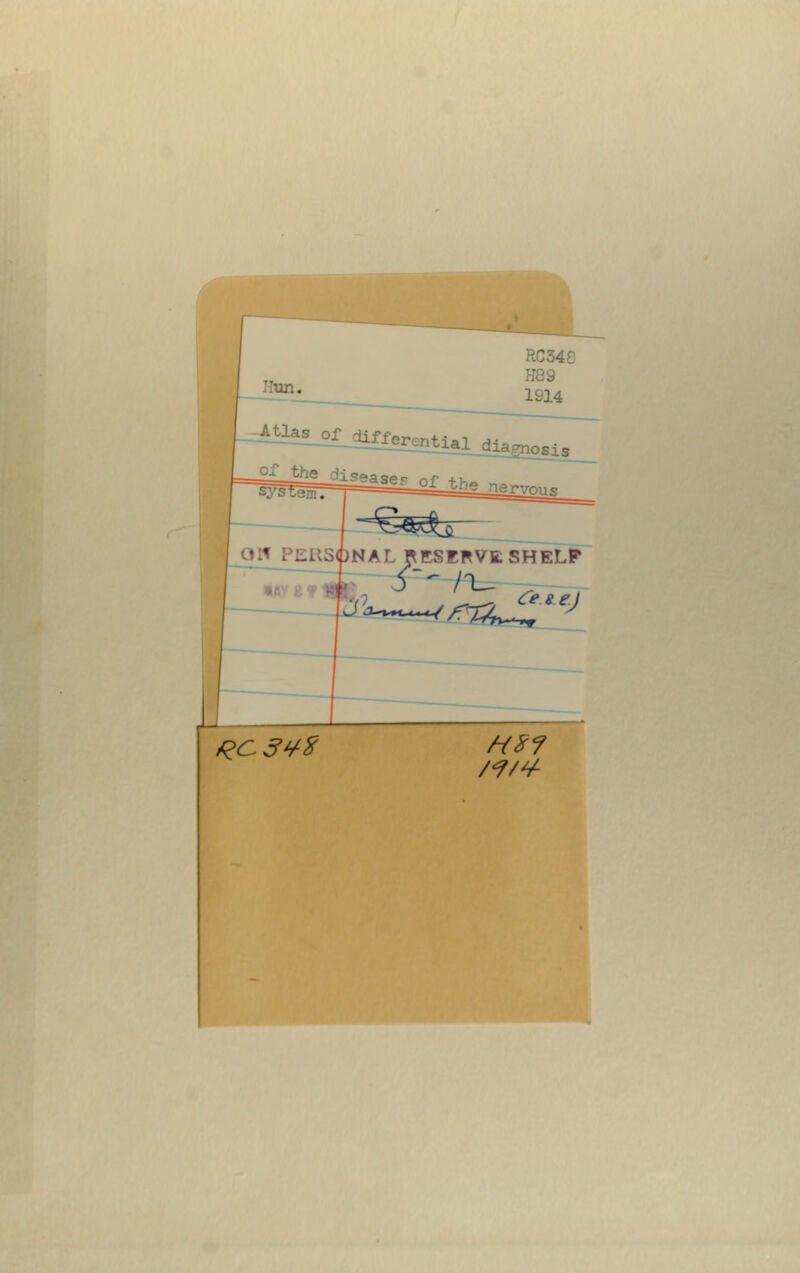 RC348
H89
Hun. 1914
Atlas of differential diagnosis
of the diseases of the nervous
system.
ON PERSONAL RESERVE SHELF
MAY 27
RC 348 H89
1914